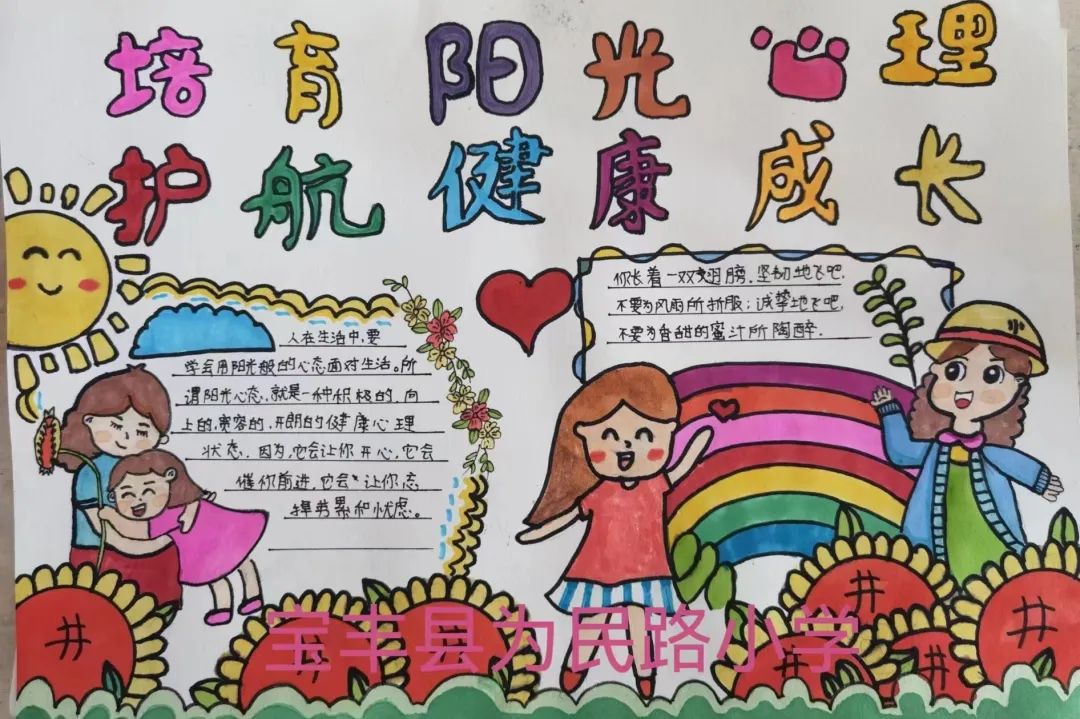 培育阳光心理
护航健康成长
人在生活中，要
学会用阳光般的心态面对生活。所
谓阳光心态，就是一种积极的、向
上的、宽容的、开朗的健康心理
状态。因为，它会让你开心，它会
催你前进，它会让你忘
掉劳累和忧虑。
你长着一双翅膀，坚韧地飞吧，
不要为风雨所折服；诚挚地飞吧，
不要为香甜的蜜汁所陶醉．
宝丰县为民路小学